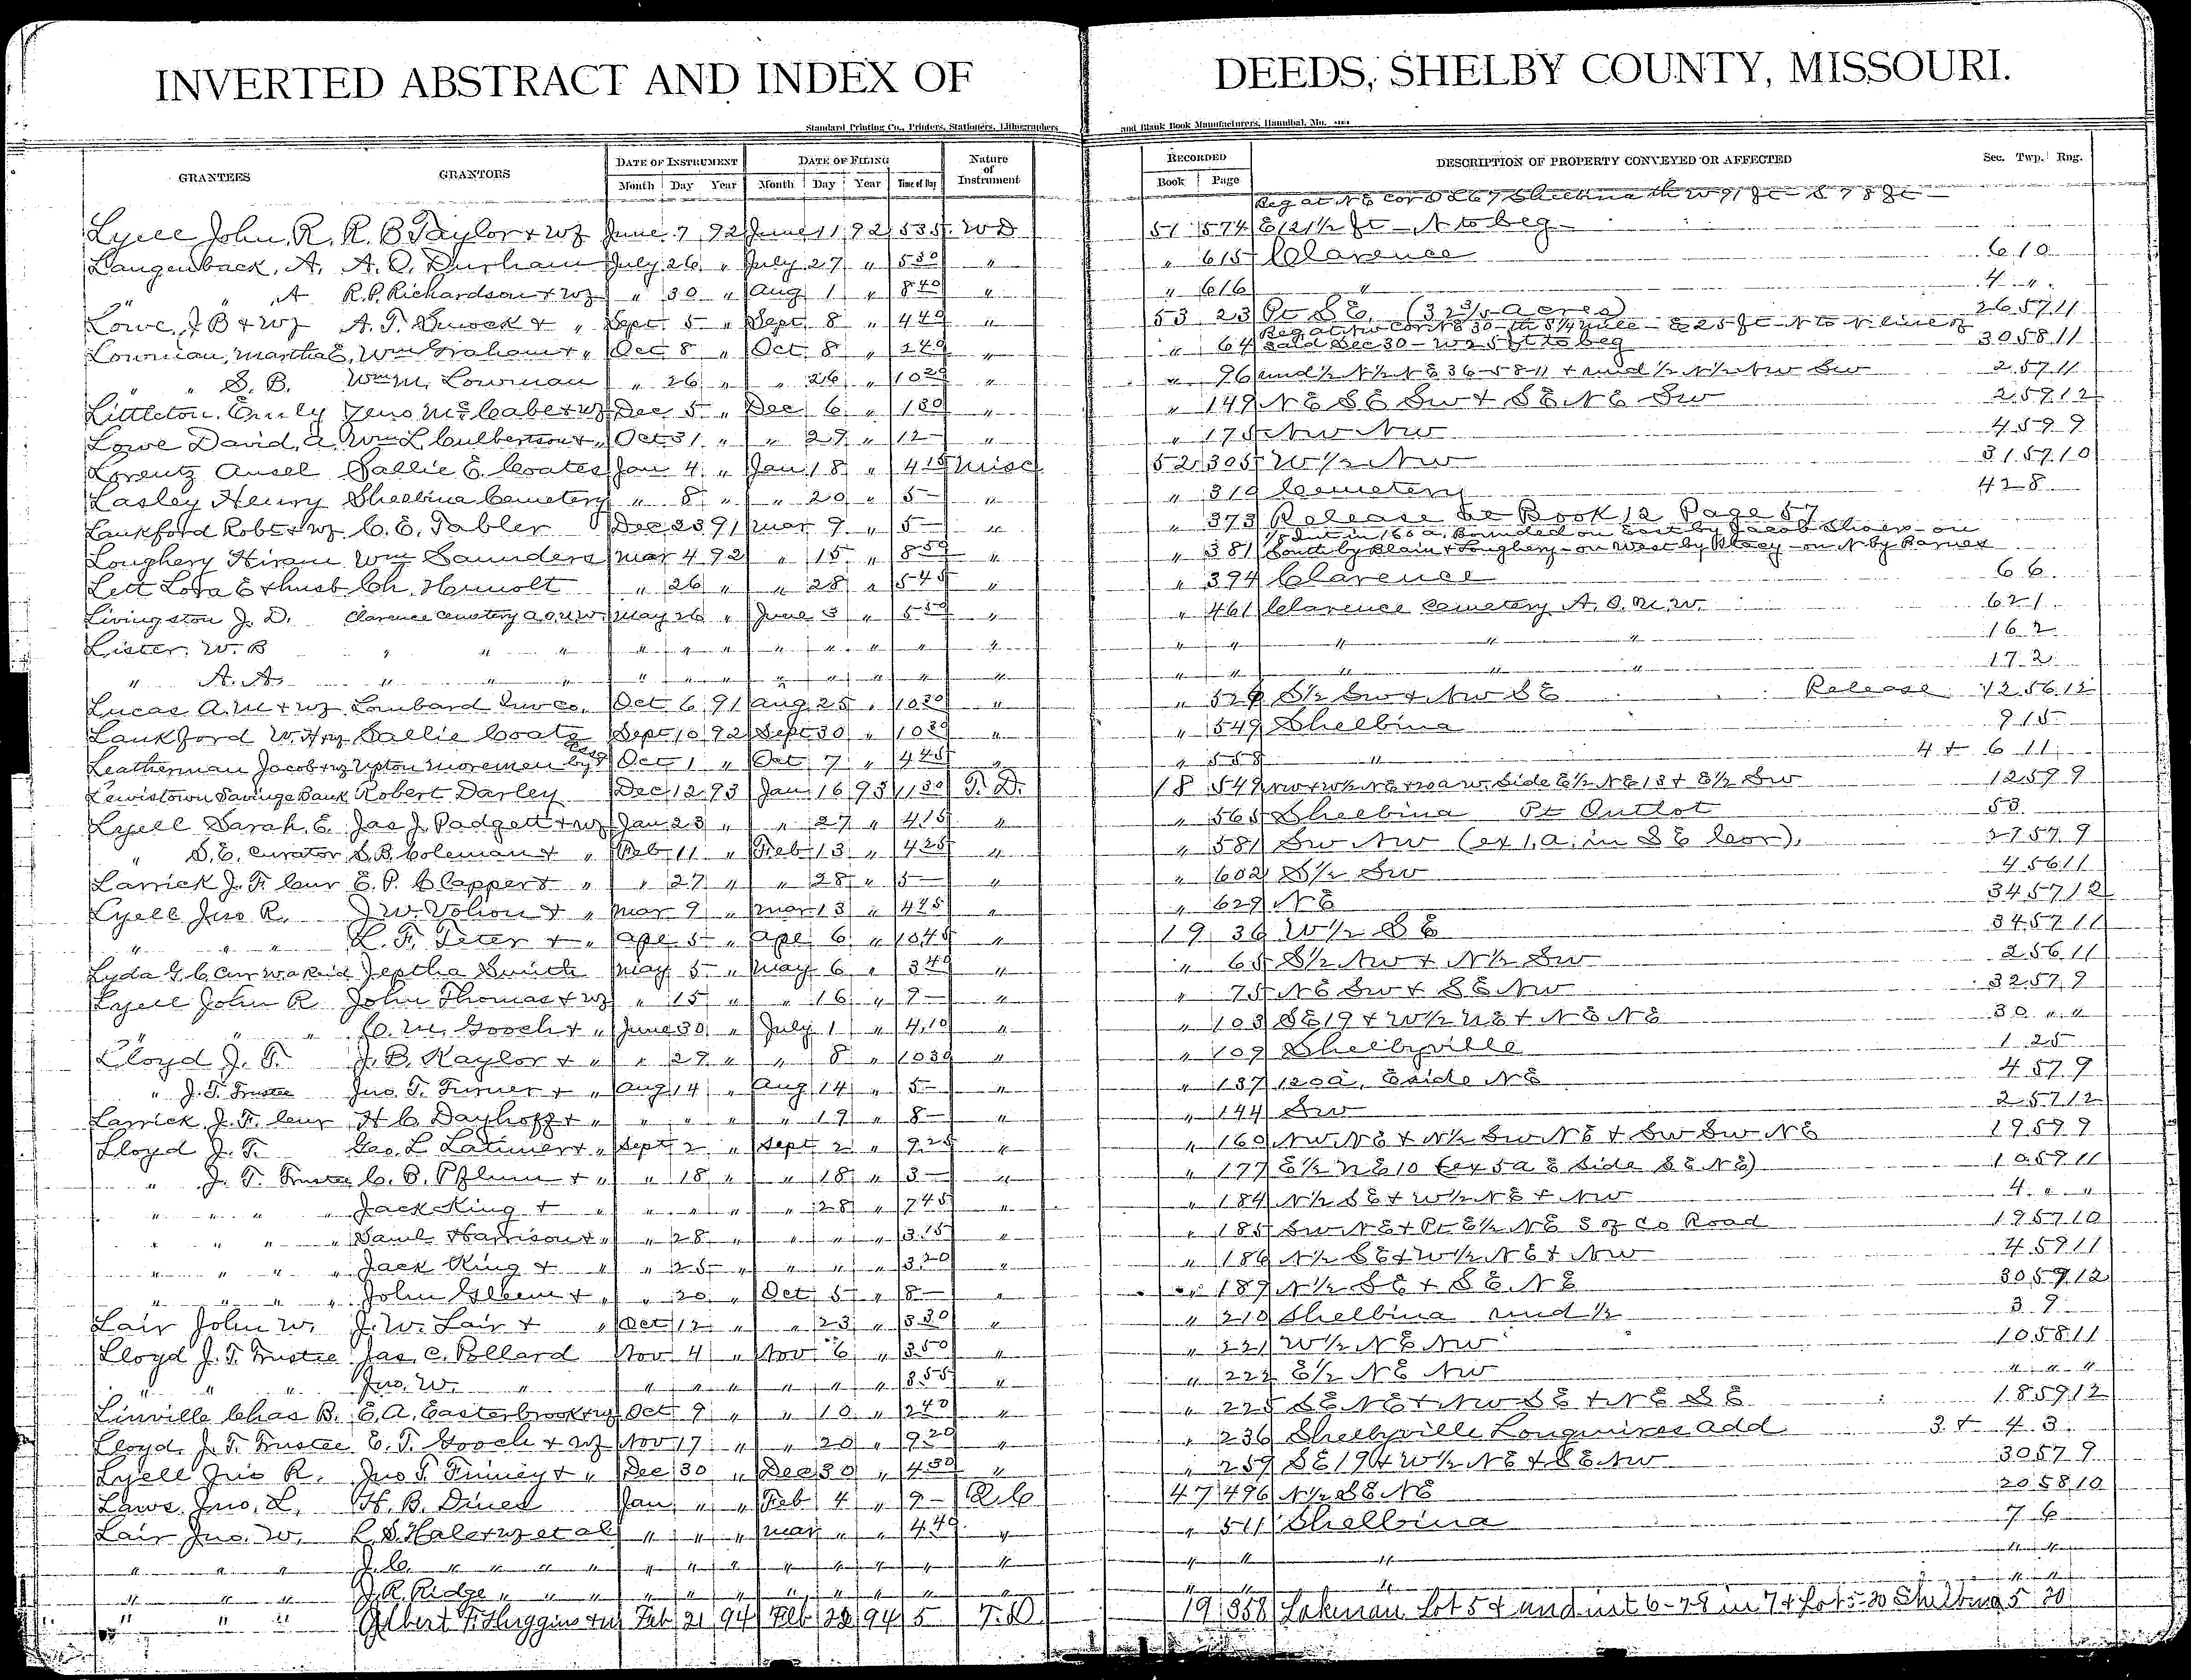 INVERTED ABSTRACT AND INDEX OF DEEDS, SHELBY COUNTY, MISSOURI.
Standard Printing Co., Printers, Stationers, Lithographers and Blank Book Manufacturers, Hannibal, Mo.
GRANTEES GRANTORS DATE OF INSTRUMENT DATE OF FILING Nature of Instrument RECORDED DESCRIPTION OF PROPERTY CONVEYED OR AFFECTED Sec. Twp. Rng.
Month Day Year Month Day Year Time of Day Book Page
Beg at NE cor OL 67 Shelbina th W 91 ft S 78 ft
Lyell John, R. R. B. Taylor + wf June 7 92 June 11 92 535 WD 51 574 E 121½ ft N to beg
Langenback, A. A. O. Durham July 26 " July 27 " 530 " " 615 Clarence 6 10
" " A R. P. Richardson + wf " 30 " Aug 1 " 840 " " 616 " 4 "
Lowe, J B + wf A. T. + " Sept 5 " Sept 8 " 440 " 53 23 Pt SE (32 3/5 acres) 26 57 11
Beg at NW cor NE 30 th S ¼ mile E 25 ft N to N line of
Lowman, Martha E. Wm Graham + " Oct 8 " Oct 8 " 240 " " 64 said Sec 30 W 25 ft to beg 30 58 11
" " S. B. Wm M. Lowman " 26 " " 26 " 1020 " " 96 und ½ N½ NE 36-58-11 + und ½ N½ NW SW 2 57 11
Littleton, Emily Zeno McCabe + wf Dec 5 " Dec 6 " 130 " " 149 NE SE SW + SE NE SW 2 59 12
Lowe David, A. Wm L. Culbertson + " Oct 31 " " 29 " 12 " " 175 NW NW 4 59 9
Lorentz Ansel Sallie E. Coates Jan 4 " Jan 18 " 415 Misc 52 305 W½ NW 31 57 10
Lasley Henry Shelbina Cemetery " 8 " " 20 " 5 " " 319 Cemetery 428
Lankford Robt + wf C. E. Tabler Dec 23 91 Mar 9 " 5 " " 373 Release see Book 12 Page 57
1/5 Int in 160 a. Bounded on East by Jacob on
Loughery Hiram Wm Saunders Mar 4 92 " 15 " 850 " " 381 South by Blain + Loughery on West by on N by Barnes
Lett Lora E + husb Ch. " 26 " " 28 " 545 " " 394 Clarence 6 6
Livingston J. D. Clarence Cemetery A O U W May 26 " June 3 " 550 " " 461 Clarence Cemetery A. O. U. W. 621
Lister W. B " " " " " " " " " " " " " " " " 162
" A. A. " " " " " " " " " " " " " " " " 172
Lucas A. M + wf Lombard Inv Co. Oct 6 91 Aug 25 " 1030 " " 529 S½ SW + NW SE Release 12 56 12
Lankford W. H + wf Sallie Coats Sept 10 92 Sept 30 " 1030 " " 549 Shelbina 9 15
Leatherman Jacob + wf Upton Moremen by Oct 1 " Oct 7 " 445 " " 558 " 4 + 6 11
Lewistown Savings Bank Robert Darley Dec 12 93 Jan 16 93 1130 T. D. 18 549 NW + W½ NE + 20 a W. side E½ NE 13 + E½ SW 12 59 9
Lyell Sarah, E. Jas J. Padgett + wf Jan 23 " " 27 " 415 " " 565 Shelbina Pt Outlot 53
" S. E. Curator S. B. Coleman + " Feb 11 " Feb 13 " 425 " " 581 SW NW (ex 1, a. in SE Cor), 27 57 9
Larrick J. F. Cur E. P. Clapper + " " 27 " " 28 " 5 " " 602 S½ SW 4 56 11
Lyell Jno R. J W. Vohon + " Mar 9 " Mar 13 " 425 " " 629 NE 34 57 12
" " " L. F. Teter + " Apl 5 " Apl 6 " 1045 " 19 36 W½ SE 34 57 11
Lyda G. C. Cur Jeptha Smith May 5 " May 6 " 340 " " 65 S½ NW + N½ SW 2 56 11
Lyell John R John Thomas + wf " 15 " " 16 " 9 " " 75 NE SW + SE NW 32 57 9
" " " C. M. Gooch + " June 30 " July 1 " 410 " " 103 SE 19 + W½ NE + NE NE 30 " "
Lloyd J. T. J. B. Kaylor + " " 29 " " 8 " 1030 " " 109 Shelbyville 1 25
" J. T. Trustee Jno. T. Turner + " Aug 14 " Aug 14 " 5 " " 137 120 a, E side NE 4 57 9
Larrick, J. F. Cur H C Dayhoff + " " " " " 19 " 8 " " 144 SW 2 57 12
Lloyd J. T. Geo. L Latimer + " Sept 2 " Sept 2 " 925 " " 160 NW NE + N½ SW NE + SW SW NE 19 59 9
" J. T. Trustee C. B. Pflum + " " 18 " " 18 " 3 " " 177 E½ NE 10 (ex 5 a E side SE NE) 10 59 11
" " " " Jack King + " " " " " 28 " 745 " " 184 N½ SE + W½ NE + NW 4 " "
" " " " Saml Harrison + " " 28 " " " " 315 " " 185 SW NE + Pt E½ NE S of Co Road 19 57 10
" " " " Jack King + " " 25 " " " " 320 " " 186 N½ SE + W½ NE + NW 4 59 11
" " " " John + " " 20 " Oct 5 " 8 " " 189 N½ SE + SE NE 30 59 12
Lair John W. J. W. Lair + " Oct 12 " " 23 " 530 " " 210 Shelbina und ½ 3 9
Lloyd J. T. Trustee Jas. C. Pollard Nov 4 " Nov 6 " 350 " " 221 W½ NE NW 10 58 11
" " " Jno. W. " " " " " " " 355 " " 222 E½ NE NW " " "
Linville Chas B. E. A. Easterbrook + wf Oct 9 " " 10 " 240 " " 225 SE NE + NW SE + NE SE 18 59 12
Lloyd, J. T. Trustee E. T. Gooch + wf Nov 17 " " 20 " 920 " " 236 Shelbyville Longmires add 3 + 4 3
Lyell Jno R. Jno T. Finney + " Dec 30 " Dec 30 " 430 " " 259 SE 19 + W½ NE + SE NW 30 57 9
Laws, Jno, L. H. B. Dines Jan " " Feb 4 " 9 Q C 47 496 N½ SE NE 20 58 10
Lair Jno. W. L S. Hale + wf et al " " " Mar " " 440 " " 511 Shelbina 7 6
" " " J. C. " " " " " " " " " " " " " " " " " "
" " " J. R. Ridge " " " " " " " " " " " " " " " "
" " " Albert F. Huggins + wf Feb 21 94 Feb 28 94 5 T. D 19 358 Lakenan Lot 5 + und int 6-7-8 in 7 + Lot 5-20 Shelbina 5 20